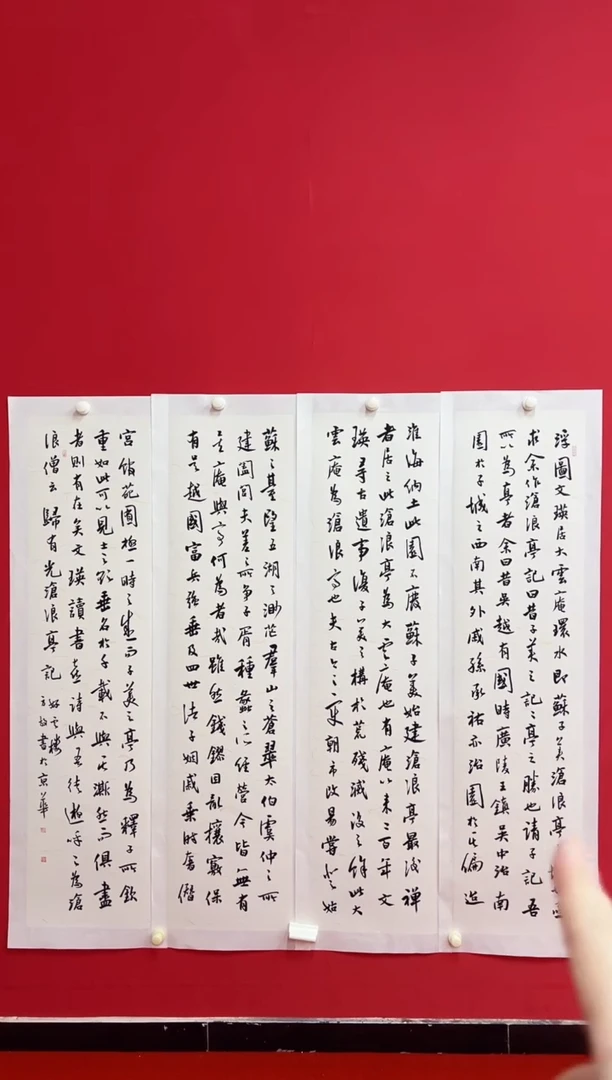 浮圖文瑛居大雲庵環水即蘇子美滄浪亭
求余作滄浪亭記曰昔子美之記記亭之勝也請子記吾
所以為亭者余曰昔吳越有國時廣陵王鎮吳中治南
園於子城之西南其外戚孫承祐亦治園於其偏迨
淮海納土此園不廢蘇子美始建滄浪亭最後禪
者居之此滄浪亭為大雲庵也有庵以來二百年文
瑛尋古遺事復子美之構於荒殘滅沒之餘此大
雲庵為滄浪亭也夫古今之變朝市改易嘗登姑
蘇之臺望五湖之渺茫群山之蒼翠太伯虞仲之所
建闔閭夫差之所爭子胥種蠡之所經營今皆無有
矣庵與亭何為者哉雖然錢鏐因亂攘竊保
有吳越國富兵強垂及四世諸子姻戚乘時奢僭
宮館苑囿極一時之盛而子美之亭乃為釋子所欽
重如此可以見士之欲垂名於千載不與其澌然而俱盡
者則有在矣文瑛讀書喜詩與吾徒遊呼之為滄
浪僧云歸有光滄浪亭記
書於京華